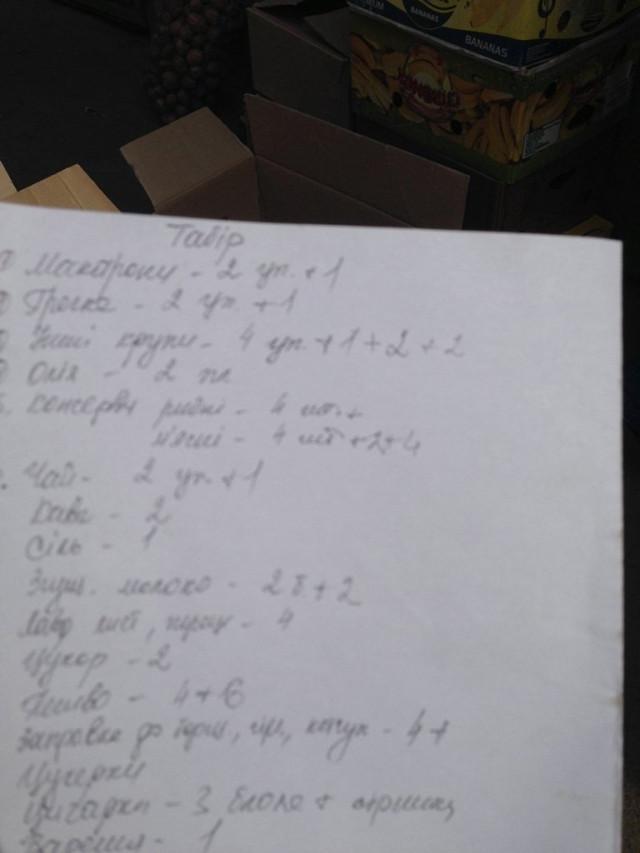 BANANAS
BANANAS
Табір
Макарони - 2 уп. + 1
Гречка - 2 уп. + 1
Інші крупи - 4 уп. + 1 + 2 + 2
Олія - 2 пл
Консерви рибні - 4 шт. +
м'ясні - 4 шт + 2 + 4
Чай - 2 уп. + 1
Кава - 2
Сіль - 1
Згущ. молоко - 2 б. + 2
Лавр лист, перець - 4
Цукор - 2
Печиво - 4 + 6
Заправка до борщ, гірч, кетчуп - 4 +
Цукерки
Цигарки - 3 блока +
Варення - 1